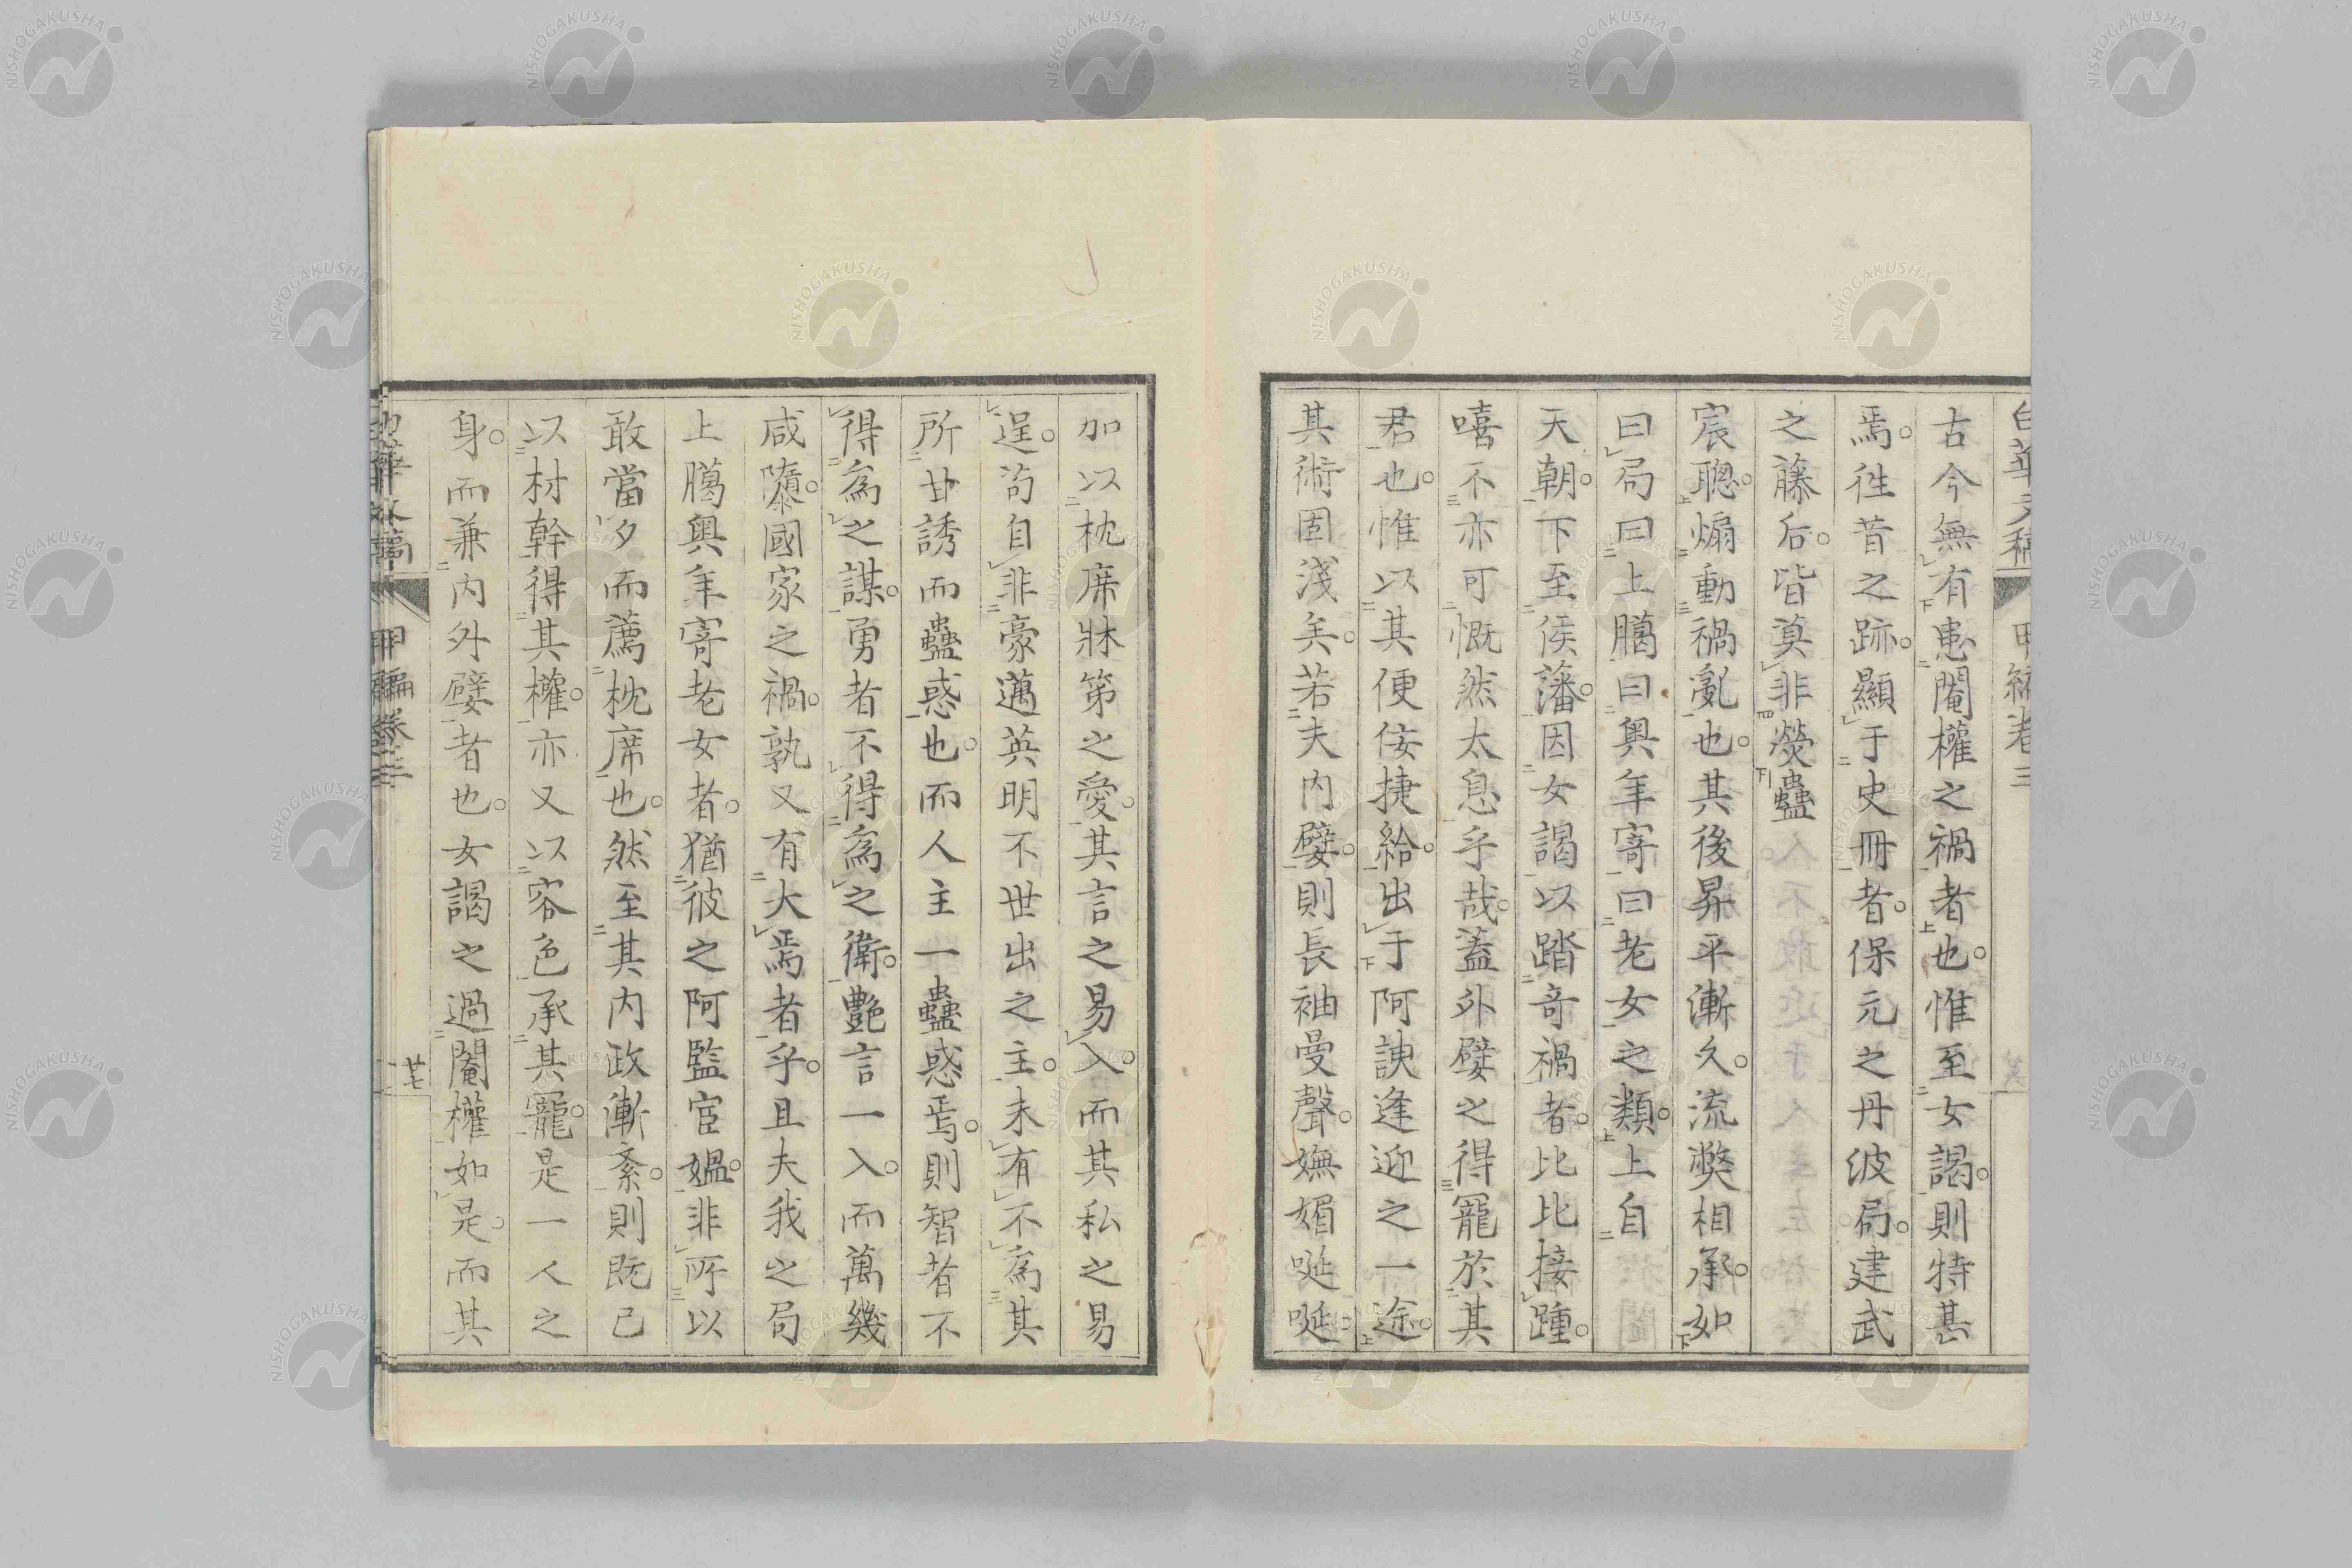 古今無有患閹權之禍者也惟至女謁則特甚
焉徃昔之跡顯于史冊者保元之丹波局建武
之藤后皆莫非熒蠱
宸聰煽動禍亂也其後昇平漸久流弊相承如
曰局曰上﨟曰輿年寄曰老女之類上自
天朝下至侯藩因女謁以踏奇禍者比比接踵
嘻不亦可慨然太息乎哉蓋外嬖之得寵於其
君也惟以其便佞捷給出于阿諛逢迎之一途
其術固淺矣若夫内嬖則長袖曼聲嫵媚唌唌
加以枕席牀第之愛其言之易入而其私之易
逞苟自非豪邁英明不世出之主未有不為其
所甘誘而蠱惑也而人主一蠱惑焉則智者不
得為之謀勇者不得為之衛艷言一入而萬幾
咸隳國家之禍孰又有大焉者乎且夫我之局
上﨟輿年寄老女者猶彼之阿監宦媼非所以
敢當夕而薦枕席也然至其内政漸紊則既已
以材幹得其權亦又以容色承其寵是一人之
身而兼内外嬖者也女謁之過閹權如是而其
甲編卷三
廿七